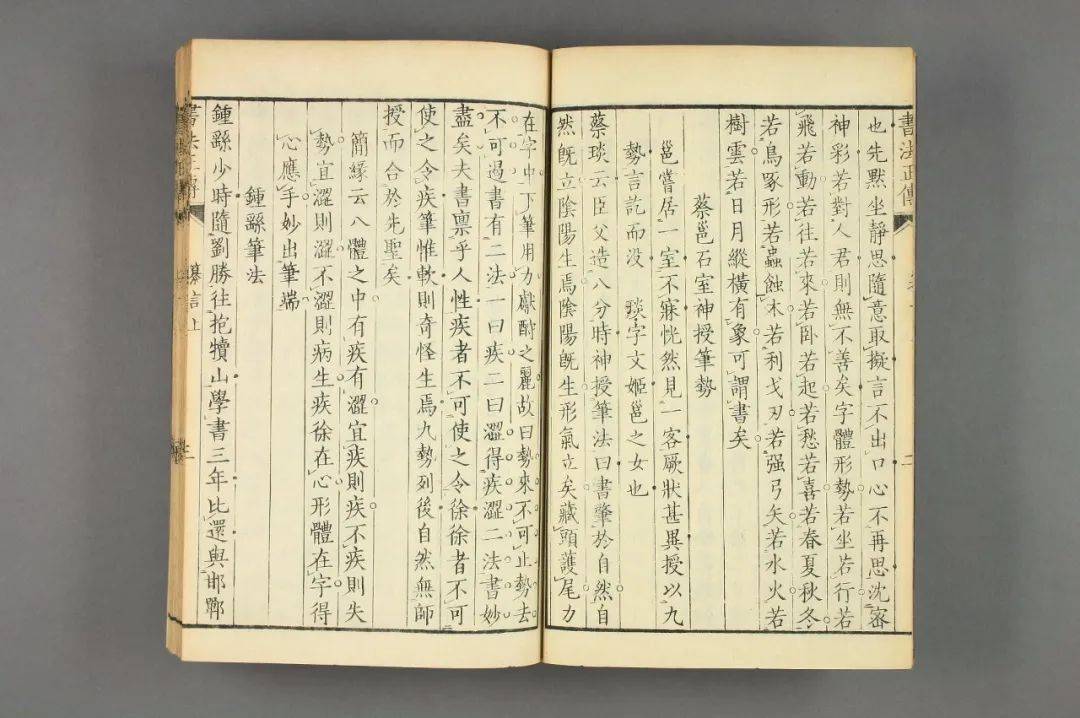 書法正傳
二
也先默坐靜思隨意取擬言不出口心不再思沈密
神彩若對人君則無不善矣字體形勢若坐若行若
飛若動若往若來若臥若起若愁若喜若春夏秋冬
若鳥啄形若蟲蝕木若利戈刃若强弓矢若水火若
樹雲若日月縱橫有象可謂書矣
蔡邕石室神授筆勢
邕嘗居一室不寐恍然見一客厥狀甚異授以九
勢言訖而没 琰字文姬邕之女也
蔡琰云臣父造八分時神授筆法曰書肇於自然自
然旣立陰陽生焉陰陽旣生形氣立矣藏頭護尾力
在字中下筆用力獻酧之麗故曰勢來不可止勢去
不可遏書有二法一曰疾二曰澀得疾澀二法書妙
盡矣夫書禀乎人性疾者不可使之令徐徐者不可
使之令疾筆惟軟則奇怪生焉九勢列後自然無師
授而合於先聖矣
簡緣云八體之中有疾有澀宜疾則疾不疾則失
勢宜澀則澀不澀則病生疾徐在心形體在字得
心應手妙出筆端
鍾繇筆法
鍾繇少時隨劉勝往抱犢山學書三年比還與邯鄲
書法正傳
纂言上